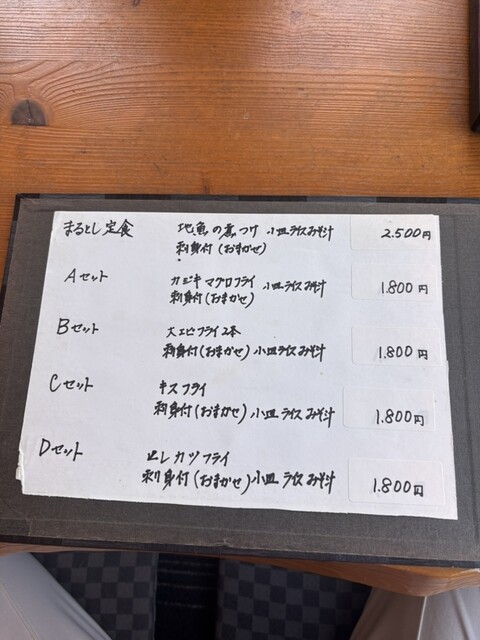 まるとし定食 地魚の煮つけ 小皿 ライス みそ汁 2.500円
刺身付(おまかせ)
Aセット カジキマグロフライ 小皿 ライス みそ汁 1.800円
刺身付(おまかせ)
Bセット 大エビフライ2本
刺身付(おまかせ) 小皿 ライス みそ汁 1.800円
Cセット キスフライ
刺身付(おまかせ) 小皿 ライス みそ汁 1.800円
Dセット ヒレカツフライ
刺身付(おまかせ) 小皿 ライス みそ汁 1.800円